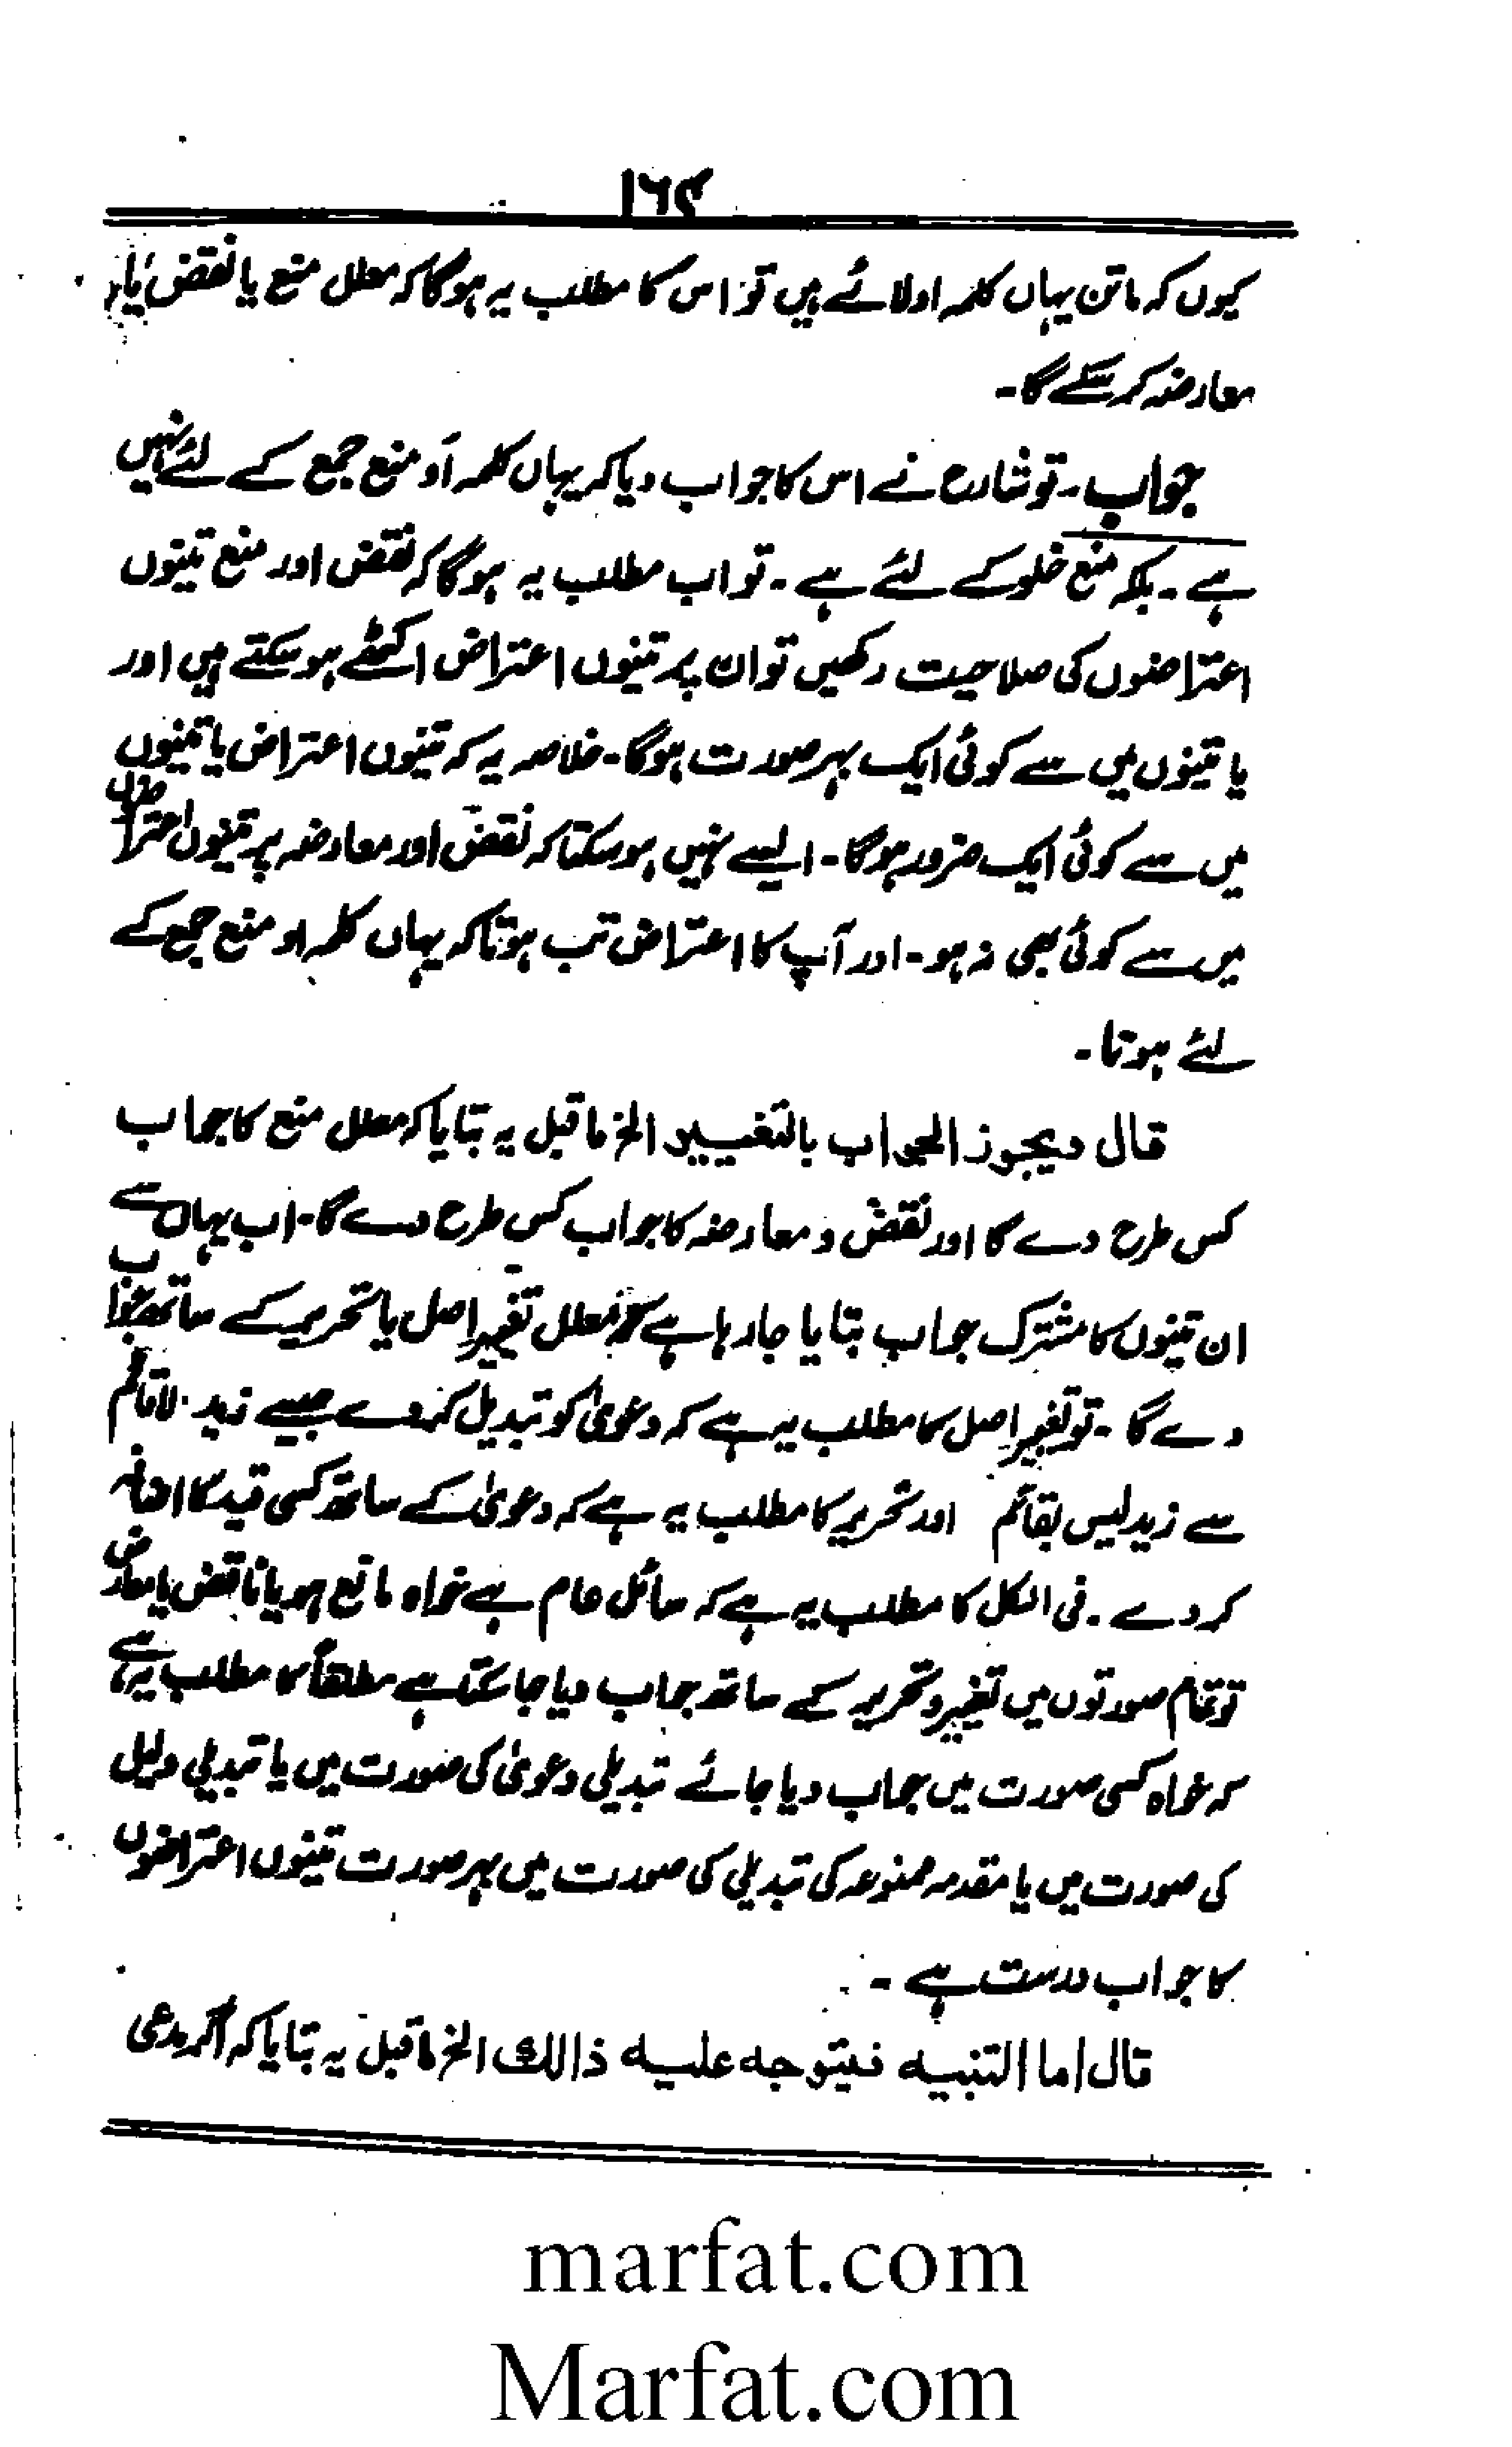 ۱۶۴
کیوں کہ ماتن یہاں کلمہ او لائے ہیں تو اس کا مطلب یہ ہوگا کہ معلل منع یا نقض یا
معارضہ کر سکے گا۔
جواب۔ تو شارح نے اس کا جواب دیا کہ یہاں کلمہ اَو منع جمع کے لئے نہیں
ہے۔ بلکہ منع خلو کے لئے ہے۔ تو اب مطلب یہ ہوگا کہ نقض اور منع تینوں
اعتراضوں کی صلاحیت رکھیں تو ان پر تینوں اعتراض اکٹھے ہو سکتے ہیں اور
یا تینوں میں سے کوئی ایک بہر صورت ہوگا۔ خلاصہ یہ کہ تینوں اعتراض یا تینوں
میں سے کوئی ایک ضرور ہوگا۔ ایسے نہیں ہو سکتا کہ نقض اور معارضہ پر تینوں اعتراضوں
میں سے کوئی بھی نہ ہو۔ اور آپ کا اعتراض تب ہوتا کہ یہاں کلمہ او منع جمع کے
لئے ہوتا۔
قال ویجوز الجواب بالتغییر الخ ماقبل یہ بتایا کہ معلل منع کا جواب
کس طرح دے گا اور نقض و معارضہ کا جواب کس طرح دے گا۔ اب یہاں سے
ان تینوں کا مشترک جواب بتایا جا رہا ہے کہ معلل تغییر اصل یا تحریر کے ساتھ جواب
دے گا۔ تو تغییر اصل کا مطلب یہ ہے کہ دعویٰ کو تبدیل کر دے جیسے زید لا قائم
سے زید لیس بقائم اور تحریر کا مطلب یہ ہے کہ دعویٰ کے ساتھ کسی قید کا اضافہ
کر دے۔ فی الکل کا مطلب یہ ہے کہ سائل عام ہے خواہ مانع ہو یا ناقض یا معارض
تو تمام صورتوں میں تغییر و تحریر کے ساتھ جواب دیا جا سکتا ہے مطلقاً کا مطلب یہ ہے
کہ خواہ کسی صورت میں جواب دیا جائے تبدیلی دعویٰ کی صورت میں یا تبدیلی دلیل
کی صورت میں یا مقدمہ ممنوعہ کی تبدیلی کی صورت میں بہر صورت تینوں اعتراضوں
کا جواب درست ہے۔
قال اما التنبیہ فیتوجہ علیہ ذالک الخ ماقبل یہ بتایا کہ اگر مدعی
marfat.com
Marfat.com